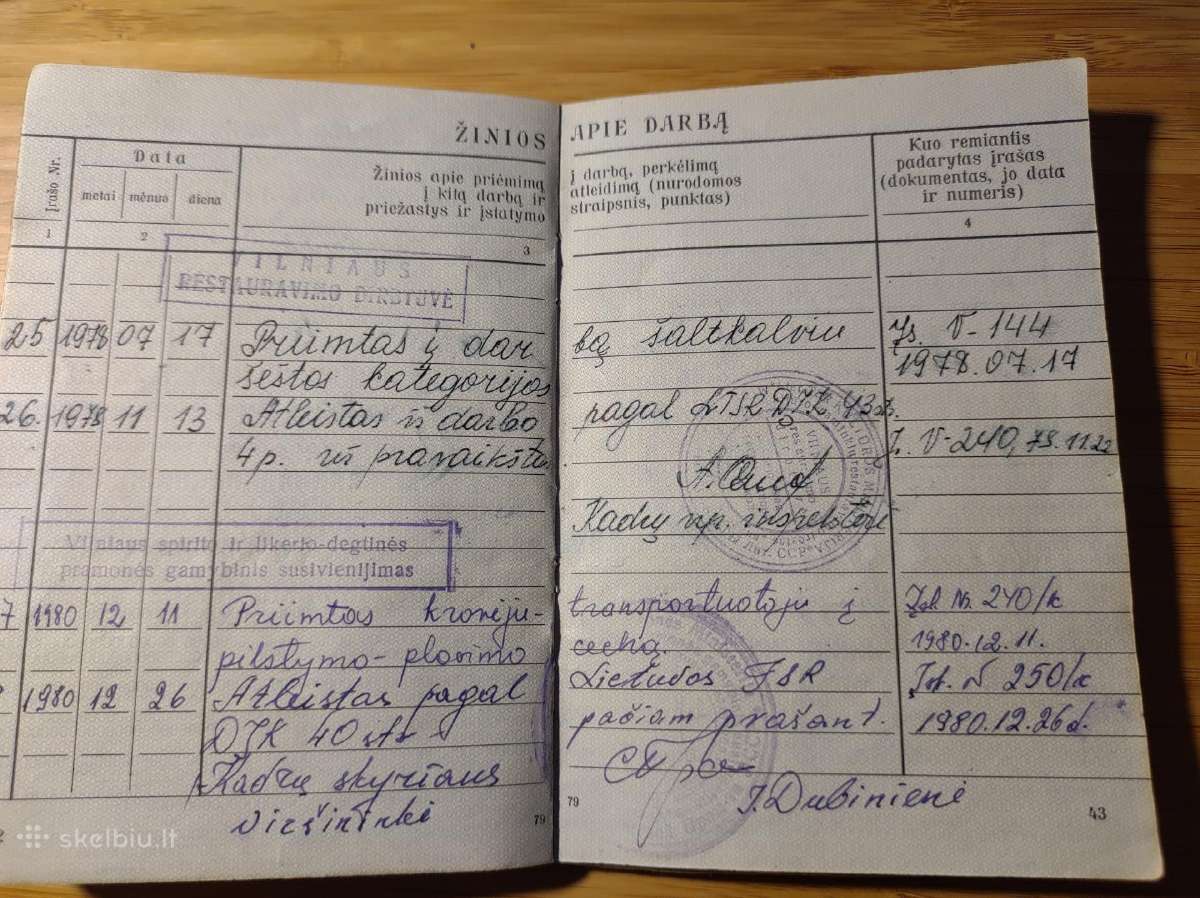 ŽINIOS APIE DARBĄ
Įrašo Nr.
Data
metai mėnuo diena
Žinios apie priėmimą į darbą, perkėlimą
į kitą darbą ir atleidimą (nurodomos
priežastys ir įstatymo straipsnis, punktas)
Kuo remiantis
padarytas įrašas
(dokumentas, jo data
ir numeris)
1 2 3 4
VILNIAUS
RESTAURAVIMO DIRBTUVĖ
25 1978 07 17 Priimtas į dar bą šaltkalviu Įs. V-144
šeštos kategorijos 1978.07.17
26. 1978 11 13 Atleistas iš darbo pagal LTSR DĮK 43 str.
4 p. už pravaikštas Į. V-240, 78.11.22
Kadrų vyr. inspektorė
Vilniaus spirito ir likerio-degtinės
pramonės gamybinis susivienijimas
7 1980 12 11 Priimtas krovėju- transportuotoju į Įsk. Nr. 240/k
pilstymo-plovimo cechą. 1980.12.11.
1980 12 26 Atleistas pagal Lietuvos TSR Įsk. N 250/k
DĮK 40 str pačiam prašant. 1980.12.26d.
Kadrų skyriaus
viršininkė I. Dubinienė
79 79 43
skelbiu.lt